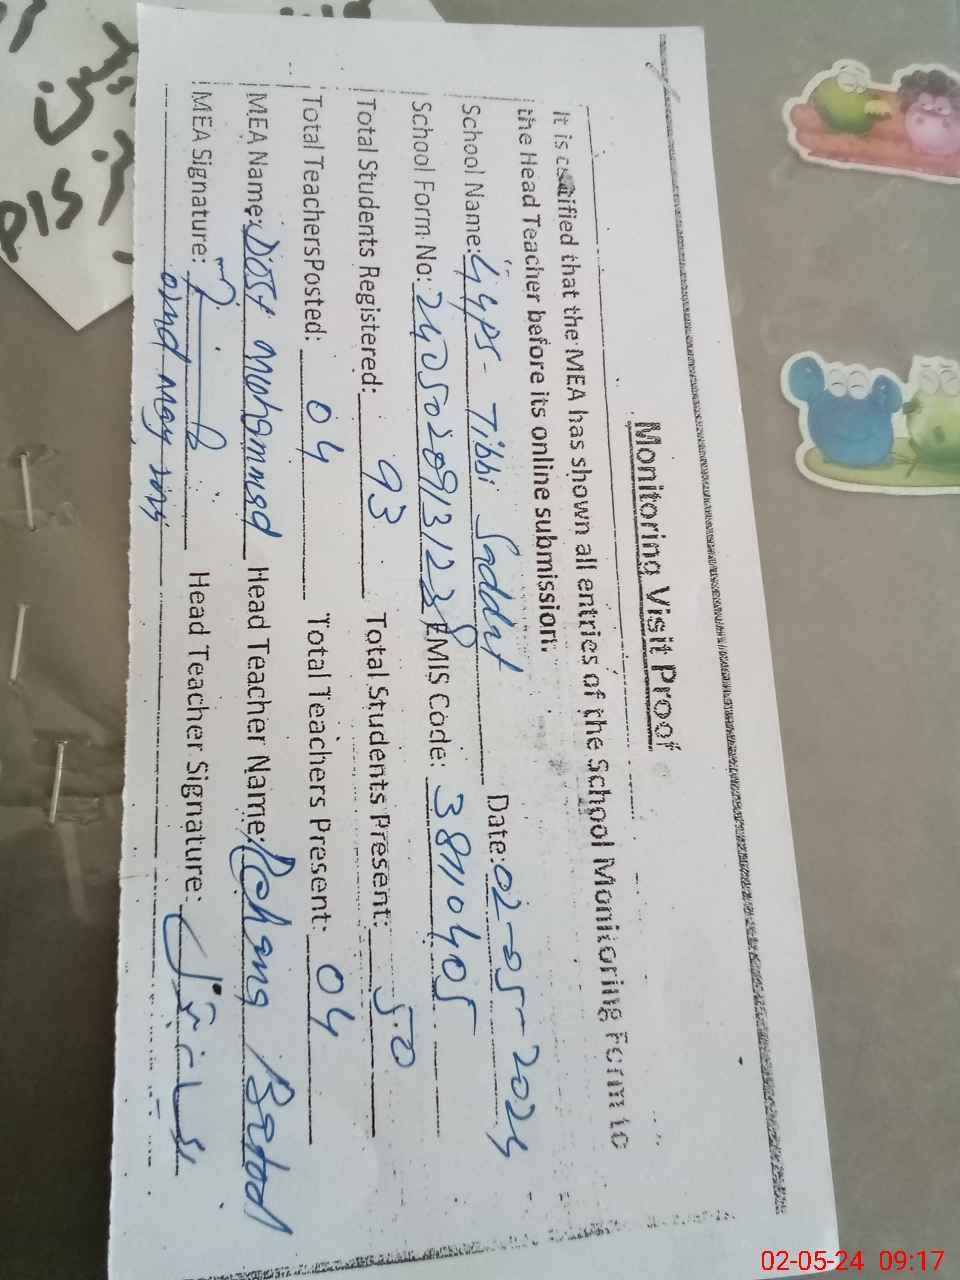 Monitoring Visit Proof
It is certified that the MEA has shown all entries of the School Monitoring Form to
the Head Teacher before its online submission.
School Name: GGPS- Tibbi Date: 02-05-2024
School Form No: EMIS Code: 38110405
Total Students Registered: 93 Total Students Present: 50
Total TeachersPosted: 04 Total Teachers Present: 04
MEA Name: Dost Muhammad Head Teacher Name: Rehana
MEA Signature: Head Teacher Signature:
02-05-24 09:17